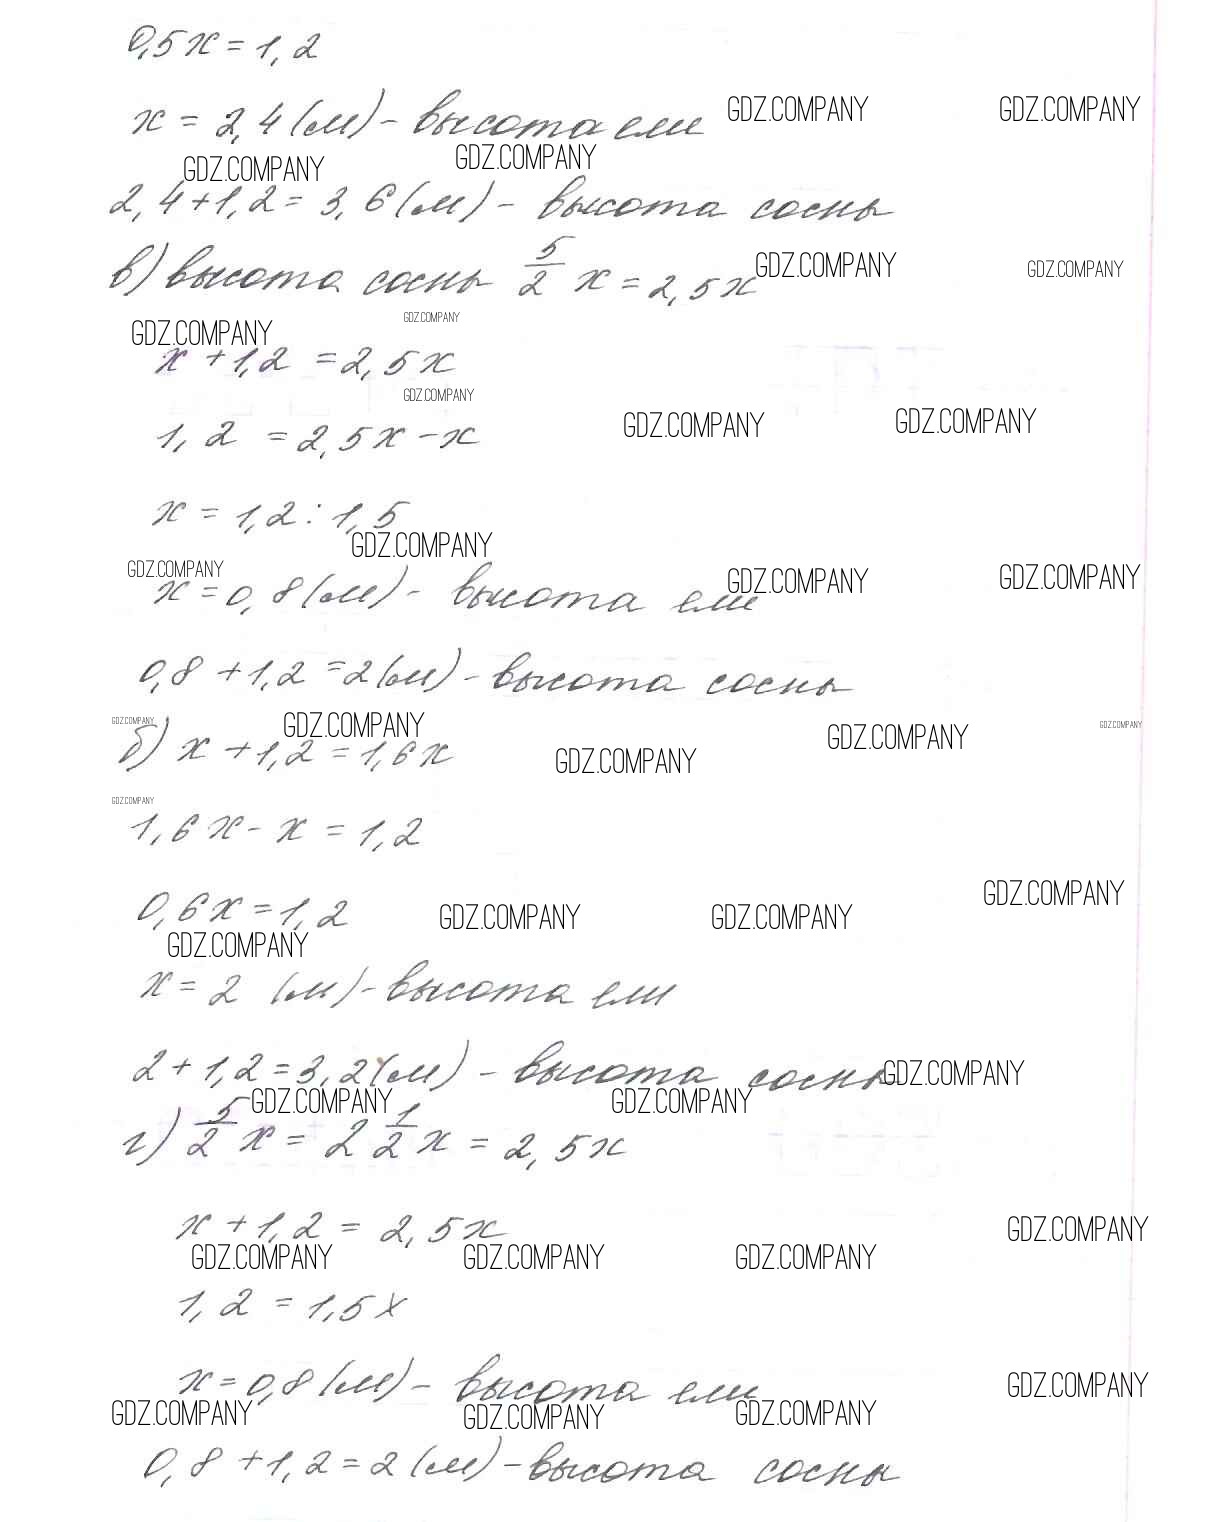 0,5x = 1,2
x = 2,4 (м) - высота ели GDZ.COMPANY GDZ.COMPANY
GDZ.COMPANY GDZ.COMPANY
2,4 + 1,2 = 3,6 (м) - высота сосны
в) высота сосны 5/2 x = 2,5x GDZ.COMPANY GDZ.COMPANY
GDZ.COMPANY GDZ.COMPANY
x + 1,2 = 2,5x
GDZ.COMPANY
1,2 = 2,5x - x GDZ.COMPANY GDZ.COMPANY
x = 1,2 : 1,5
GDZ.COMPANY
GDZ.COMPANY GDZ.COMPANY GDZ.COMPANY
x = 0,8 (м) - высота ели
0,8 + 1,2 = 2 (м) - высота сосны
GDZ.COMPANY GDZ.COMPANY GDZ.COMPANY GDZ.COMPANY
б) x + 1,2 = 1,6x GDZ.COMPANY
GDZ.COMPANY
1,6x - x = 1,2
0,6x = 1,2 GDZ.COMPANY GDZ.COMPANY GDZ.COMPANY
GDZ.COMPANY
x = 2 (м) - высота ели
2 + 1,2 = 3,2 (м) - высота сосны GDZ.COMPANY
GDZ.COMPANY GDZ.COMPANY
г) 5/2 x = 2 1/2 x = 2,5x
x + 1,2 = 2,5x GDZ.COMPANY
GDZ.COMPANY GDZ.COMPANY GDZ.COMPANY
1,2 = 1,5x
x = 0,8 (м) - высота ели GDZ.COMPANY
GDZ.COMPANY GDZ.COMPANY GDZ.COMPANY
0,8 + 1,2 = 2 (м) - высота сосны